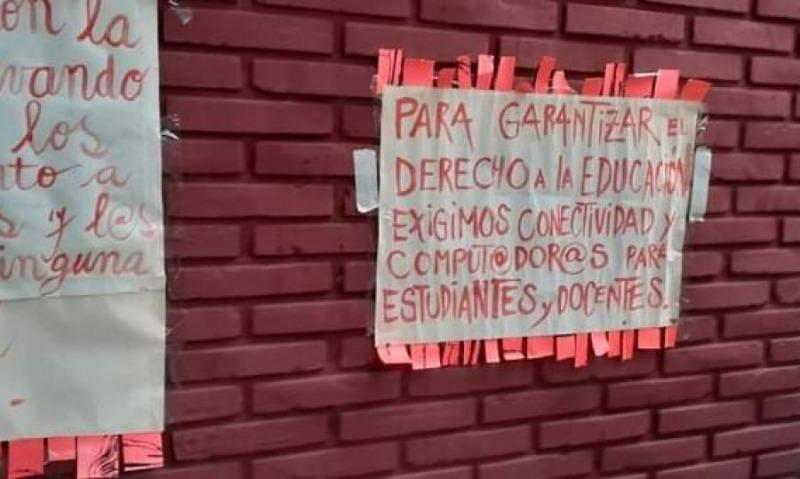 on la
vando
los
to a
s y l@s
inguna
PARA GARANTIZAR EL
DERECHO A LA EDUCACIÓN
EXIGIMOS CONECTIVIDAD Y
COMPUT@DOR@S PARA
ESTUDIANTES y DOCENTES.